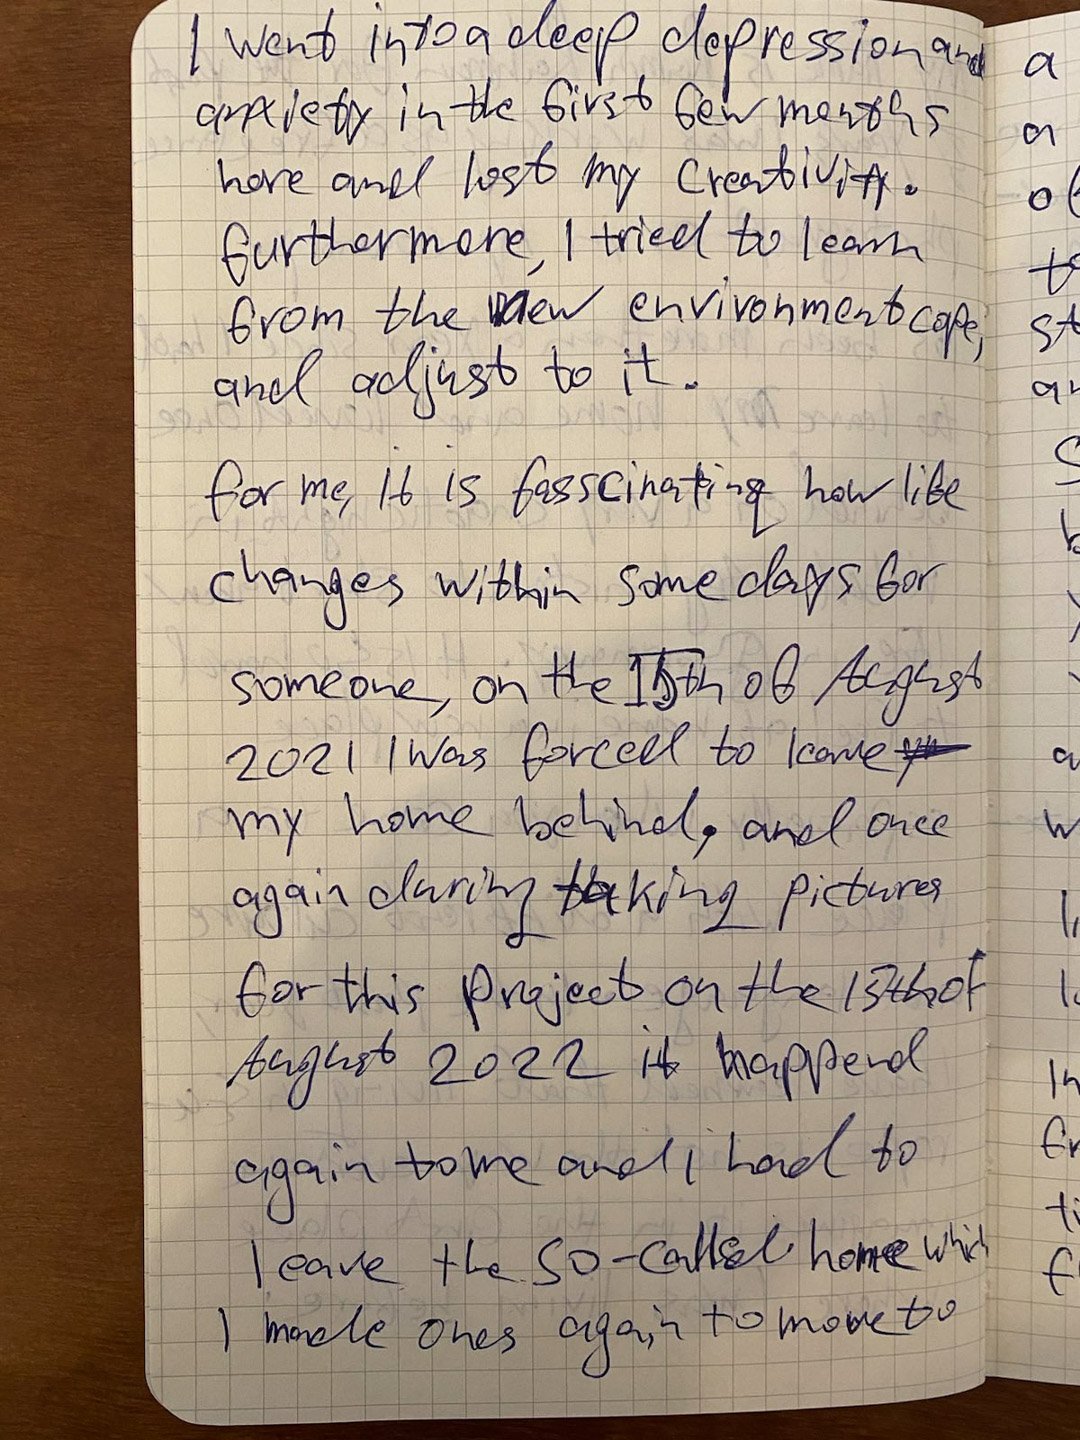 I went into a deep depression and
anxiety in the first few months
here and lost my creativity.
furthermore, I tried to learn
from the new environment cope,
and adjust to it.
for me, it is fasscinating how life
changes within some days for
someone, on the 15th of August
2021 I was forced to leave
my home behind, and once
again during taking pictures
for this project on the 15th of
August 2022 it happend
again to me and i had to
leave the so-called home which
I made ones again to move to
a
a
of
to
st
an
S
b
y
a
w
In
fr
ti
f